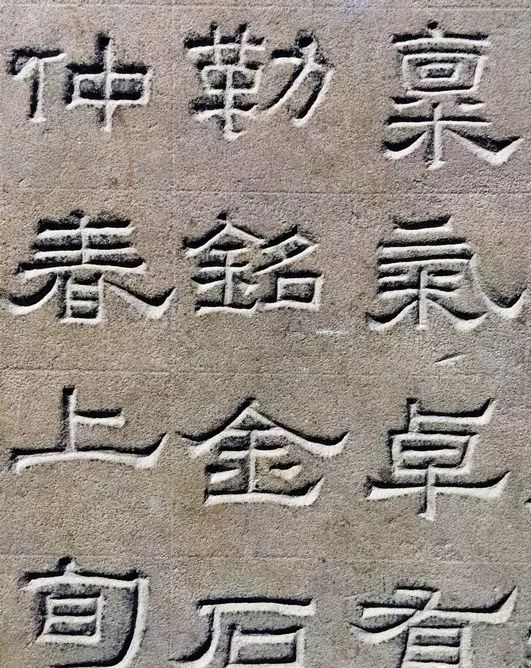 稟氣卓有
勒銘金石
仲春上旬